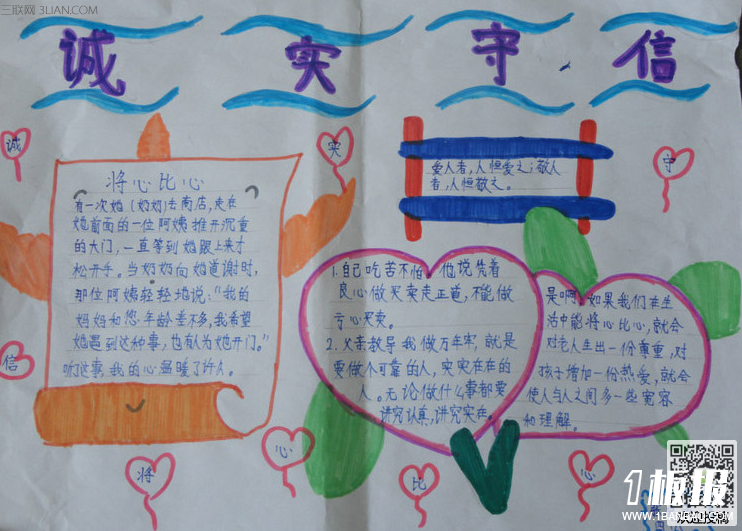 三联网 3LIAN.COM
诚 实 守 信
诚
实
守
信
将
心
比
心
将心比心
有一次她(奶奶)去商店,走在
她前面的一位阿姨推开沉重
的大门,一直等到她跟上来才
松开手。当奶奶向她道谢时,
那位阿姨轻轻地说:“我的
妈妈和您年龄差不多,我希望
她遇到这种事,也有人为她开门。”
听了这事,我的心温暖了许久。
爱人者,人恒爱之;敬人
者,人恒敬之。
1. 自己吃苦不怕。他说凭着
良心做买卖走正道,不能做
亏心买卖。
2. 父亲教导我做万年牢,就是
要做个可靠的人,实实在在的
人。无论做什么事都要
讲究认真,讲究实在。
是啊,如果我们在生
活中能将心比心,就会
对老人生出一份尊重,对
孩子增加一份热爱,就会
使人与人之间多一些宽容
和理解。
1板报
WWW.1BANBAO.COM